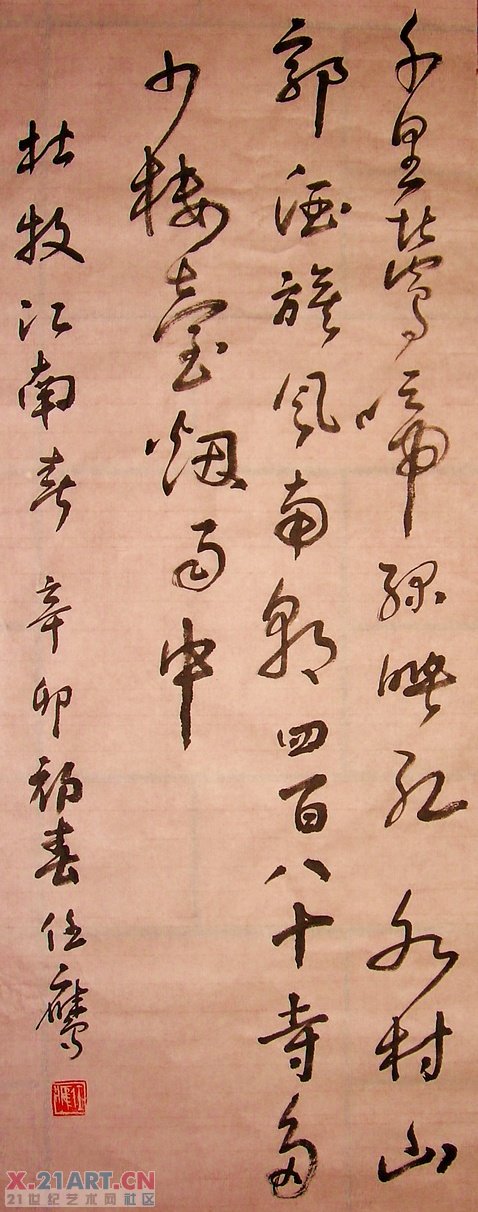 千里莺啼绿映红 水村山
郭酒旗风南朝四百八十寺多
少楼臺烟雨中
杜牧江南春 辛卯初春任鹰
X.21ART.CN
21世纪艺术网社区